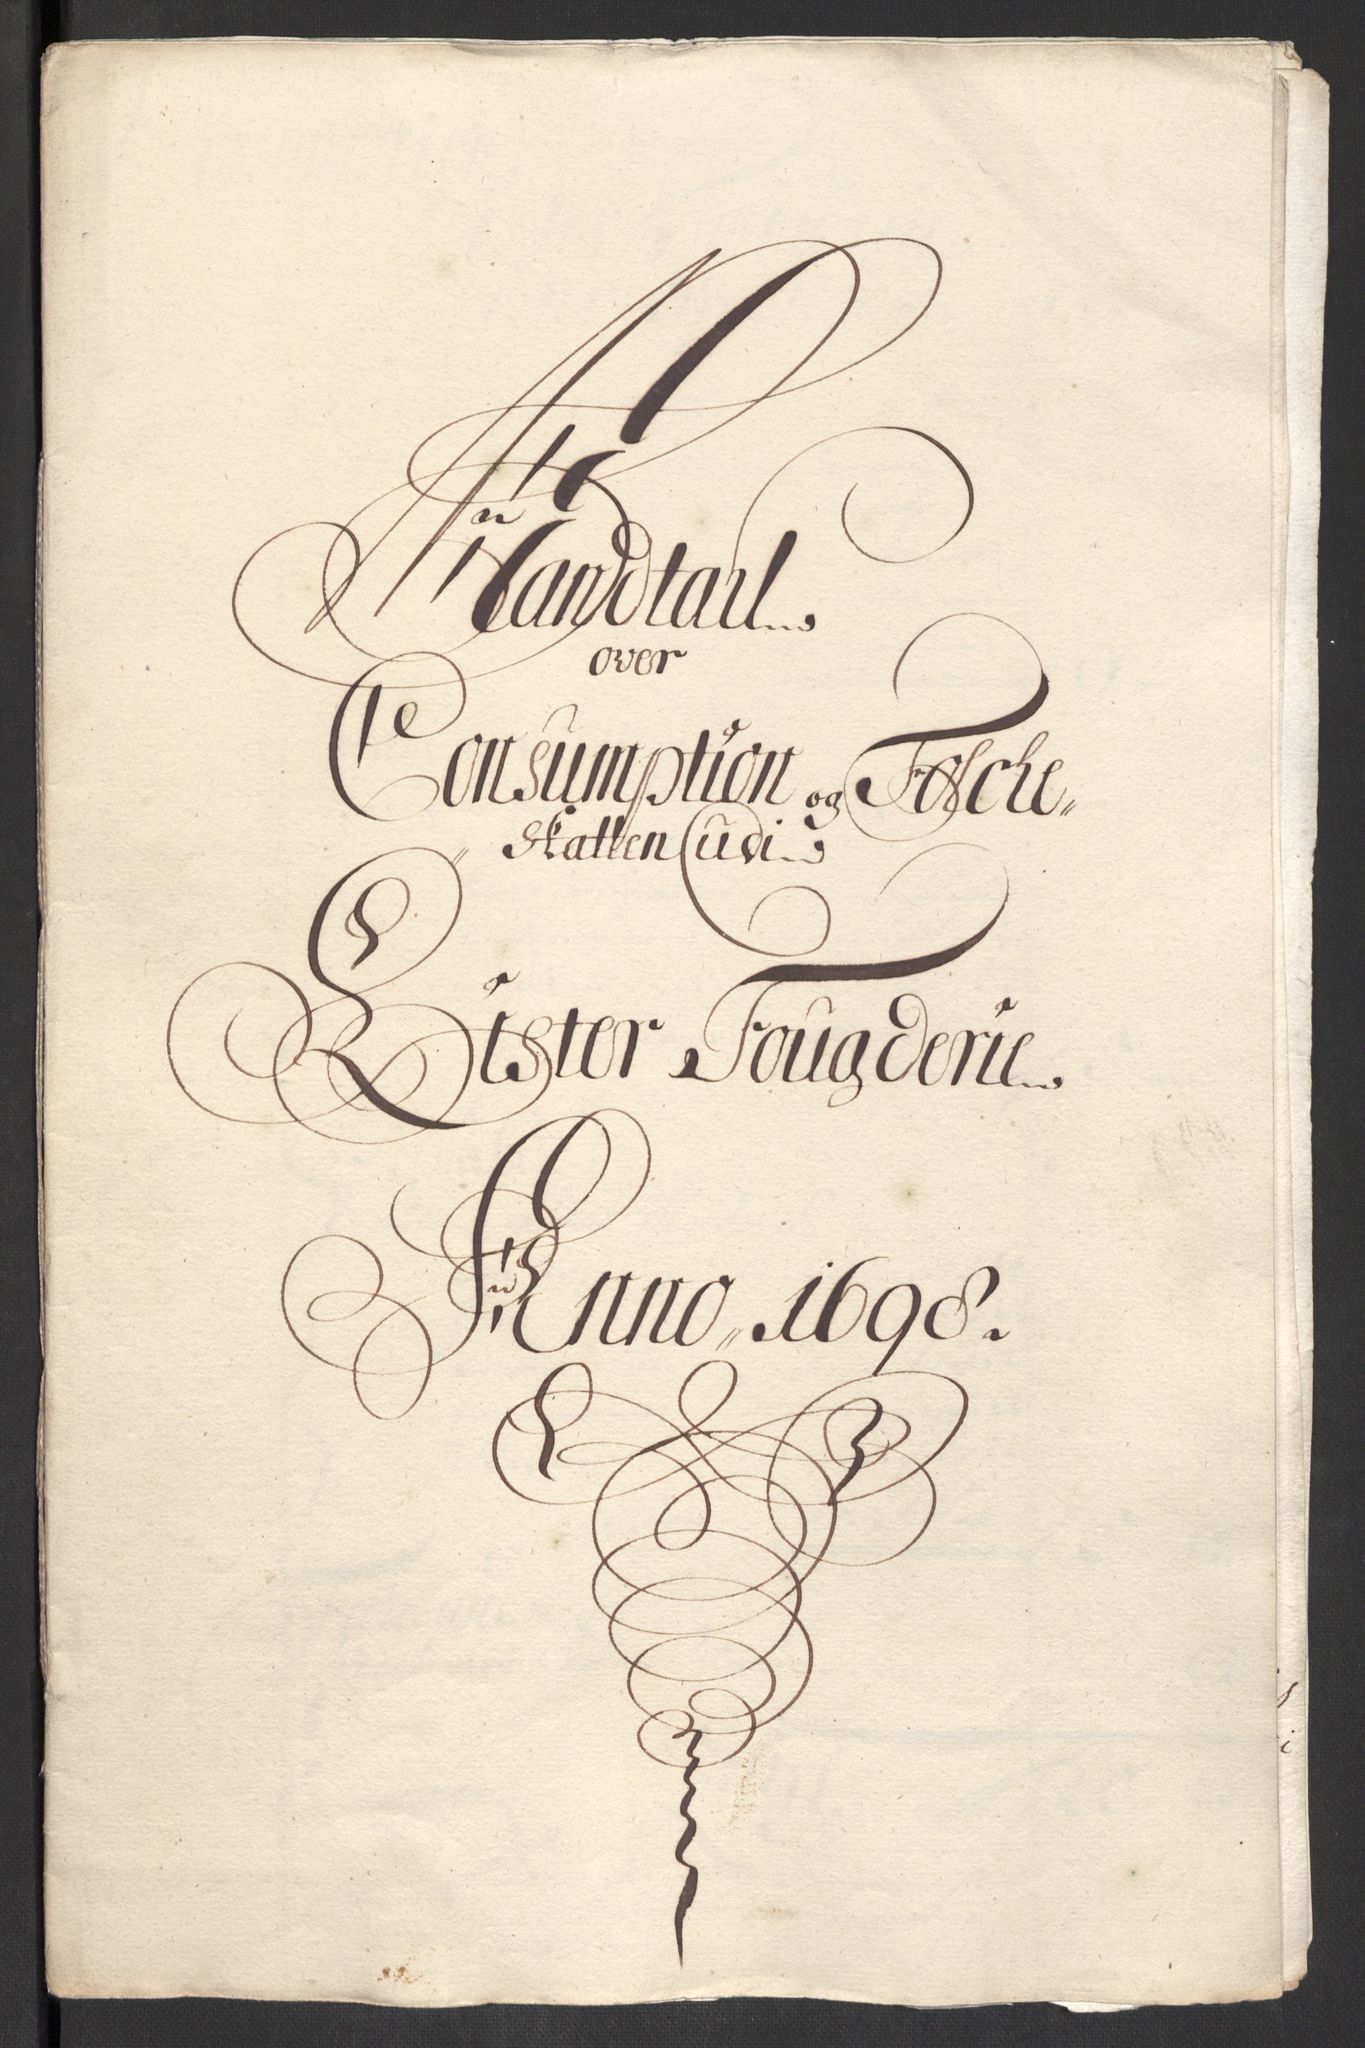 Mandtall
over
Consumption og Folche-
skatten udi
Lister Fougderie
Anno 1698.